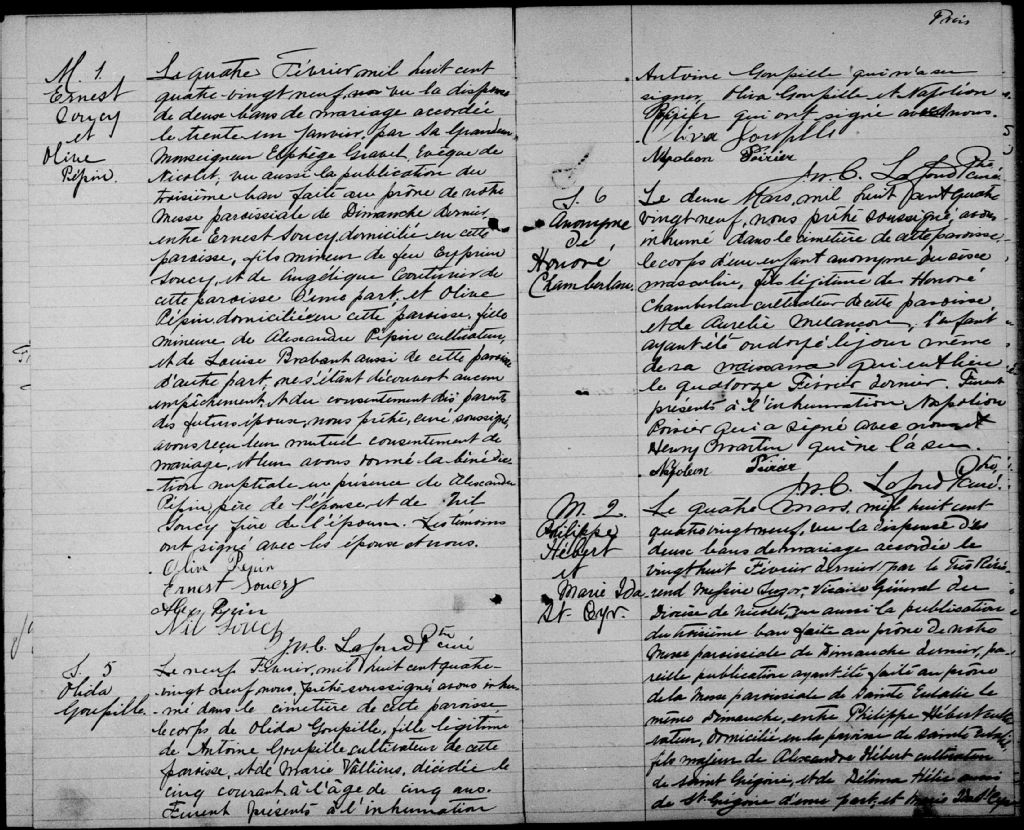 M. 1.
Ernest
Soucy
et
Olive
Pépin.
Le quatre Février mil huit cent
quatre-vingt neuf, vu la dispense
de deux bans de mariage accordée
le trente un Janvier, par Sa Grandeur
Monseigneur Elphège Gravel, Evêque de
Nicolet, vu aussi la publication du
troisième ban faite au prône de notre
Messe paroissiale de Dimanche dernier,
entre Ernest Soucy, domicilié en cette
paroisse, fils mineur de feu Cyprien
Soucy, et de Angélique Couturier de
cette paroisse d'une part, et Olive
Pépin, domiciliée en cette paroisse, fille
mineure de Alexandre Pépin cultivateur,
et de Louise Brabant aussi de cette paroisse
d'autre part, ne s'étant découvert aucun
empêchement, et du consentement des parents
des futurs époux, nous prêtre, curé soussigné,
avons reçu leur mutuel consentement de
mariage, et leur avons donné la bénédic-
tion nuptiale en présence de Alexandre
Pépin, père de l'épouse, et de Nil
Soucy frère de l'époux. Les témoins
ont signé avec les époux et nous.
Olive Pepin
Ernest Soucy
Alex Pepin
Nil Soucy
J. M. C. Lafond Ptre curé
S. 5
Olida
Goupille.
Le neuf Février, mil huit cent quatre-
vingt neuf, nous, prêtre soussigné, avons inhu-
mé dans le cimetière de cette paroisse
le corps de Olida Goupille, fille légitime
de Antoine Goupille cultivateur de cette
paroisse, et de Marie Vallières, décédée le
cinq courant, à l'âge de cinq ans.
Furent présents à l'inhumation
Trois
Antoine Goupille qui n'a su
signer, Oliva Goupille et Napoléon
qui ont signé avec nous.
Oliva Goupille
Napoleon Poirier
J. M. C. Lafond Ptre curé
S. 6
Anonyme
de
Honoré
Chamberlan.
Le deux Mars, mil huit cent quatre
vingt-neuf, nous prêtre soussigné, avons
inhumé dans le cimetière de cette paroisse,
le corps d'un enfant anonyme du sexe
masculin, fils légitime de Honoré
Chamberlan cultivateur de cette paroisse
et de Aurélie Melançon, l'enfant
ayant été ondoyé le jour même
de sa naissance qui eut lieu
le quatorze Février dernier. Furent
présents à l'inhumation Napoléon
Poirier qui a signé avec nous et
Henry Martin qui ne l'a su.
Napoleon Poirier
J. M. C. Lafond Ptre curé.
M. 2
Philippe
Hébert
et
Marie Ida
St. Cyr.
Le quatre Mars, mil huit cent
quatre vingt neuf, vu la dispense des
deux bans de mariage accordée le
vingt huit Février dernier par le Très Révé-
rend Messire Suzor, Vicaire Général du
Diocèse de Nicolet, vu aussi la publication
du troisième ban faite au prône de notre
Messe paroissiale de Dimanche dernier, pa-
reille publication ayant été faite au prône
de la Messe paroissiale de Sainte Eulalie le
même Dimanche, entre Philippe Hébert culti-
vateur, domicilié en la paroisse de Sainte Eulalie,
fils majeur de Alexandre Hébert cultivateur
de Saint Grégoire, et de Délima Hélie aussi
de St. Grégoire d'une part, et Marie Ida St Cyr